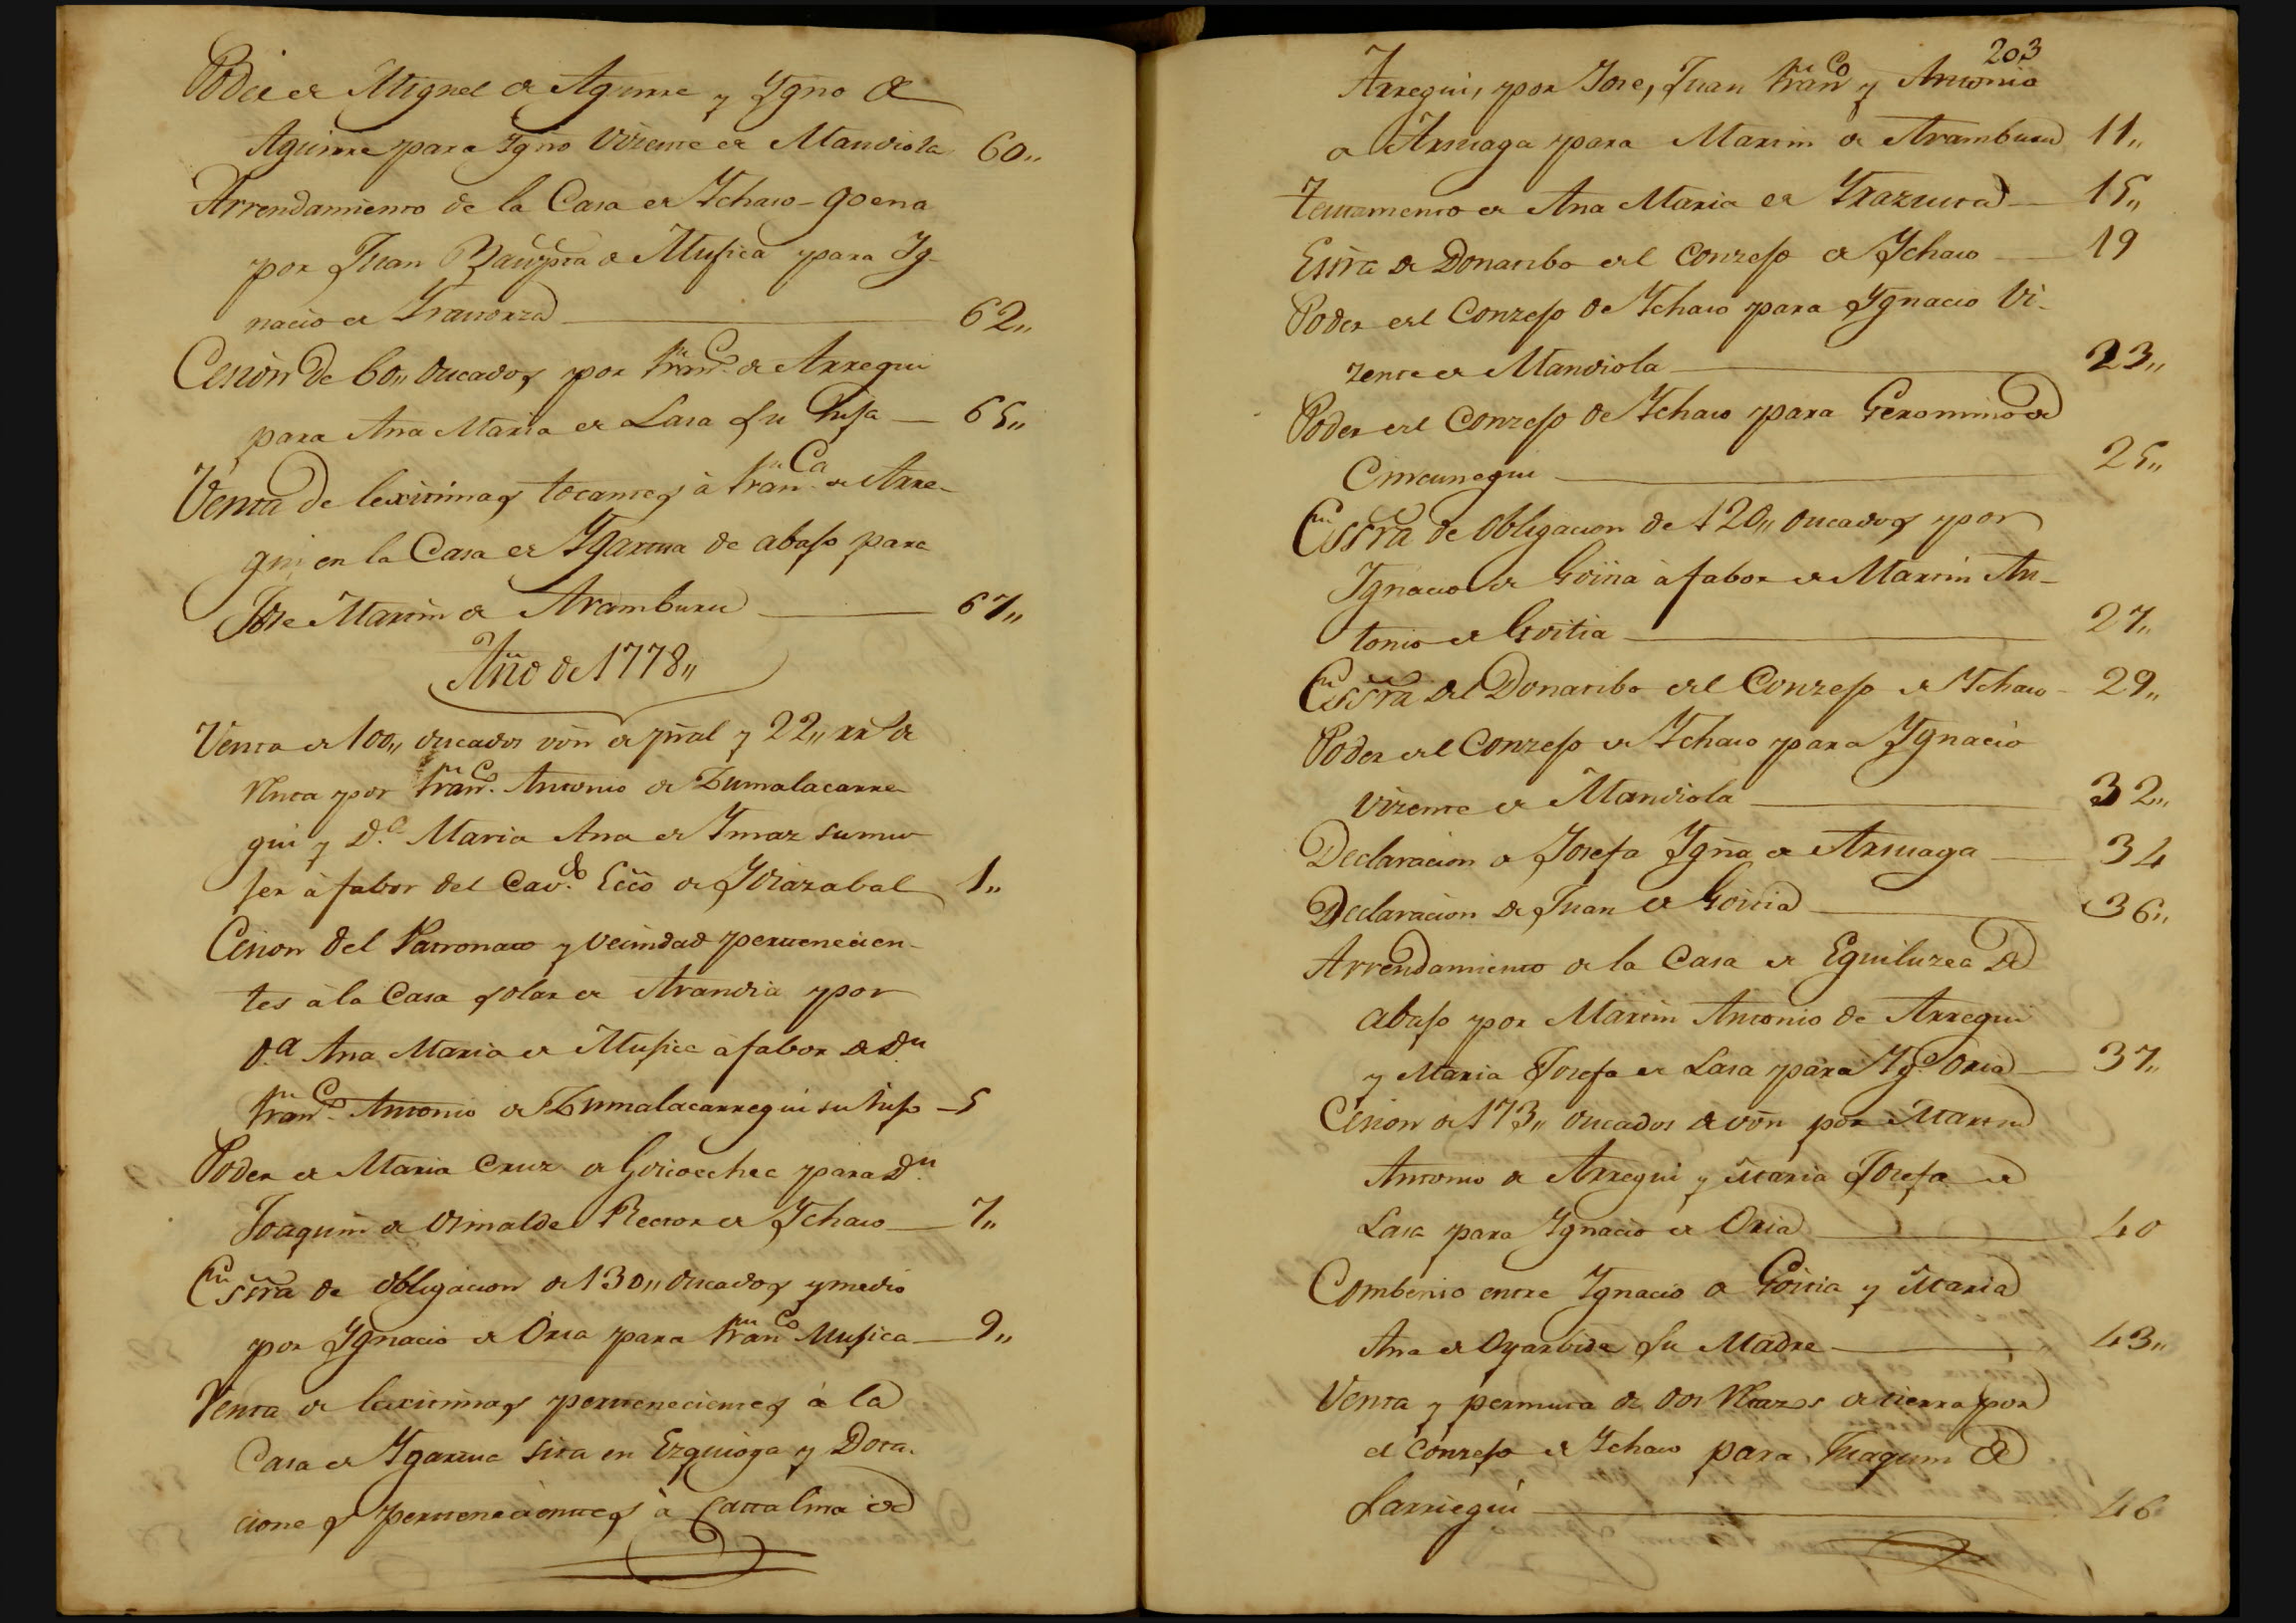 Poder de Miguel de Aguirre y Ygnº de
Aguirre para Ygnº Vizente de Mandiola 60,,
Arrendamiento de la Casa de Ychaso-goena
por Juan Baupta de Mujica para Yg-
nacio de Yraiorza 62,,
Cesion de 60,, ducados por Franca de Arregui
para Ana Maria de Lasa su hija 65,,
Venta de lexitimas tocantes à Franca de Arre-
gui en la Casa de Ygartua de abajo para
Jose Martin de Aramburu 67,,
Año de 1778,,
Venta de 100,, ducados von de pñal y 22,, rrs de
Renta por Franco Antonio de Zumalacarre-
gui y Da. Maria Ana de Ymaz su mu-
jer à fabor del Cavdo Ecco de Ydiazabal 1,,
Cesion del Patronato y vecindad pertenecien-
tes à la Casa solar de Arandia por
Da Ana Maria de Mujica à fabor de Dn
Franco Antonio de Zumalacarregui su hijo 5
Poder de Maria Cruz de Goicoechea para Dn
Joaquin de Elinalde Rector de Ychaso 7,,
Essra de obligacion de 130,, ducados y medio
por Ygnacio de Oria para Franco Mujica 9,,
Venta de lexitimas pertenecientes à la
Casa de Ygartua sita en Ezquioga y Dota-
ciones pertenecientes à Cattalina de
203
Arregui, por Jose, Juan Franco y Antonio
de Arsuaga para Martin de Aramburu 11,,
Testamento de Ana Maria de Yrazusta 15,,
Essra de Donatibo del Conzejo de Ychaso 19
Poder del Conzejo de Ychaso para Ygnacio Vi-
zente de Mandiola 23,,
Poder del Conzejo de Ychaso para Geronimo de
Cincunegui 25,,
Essra de obligacion de 120,, ducados por
Ygnacio de Goitia à fabor de Martin An-
tonio de Goitia 27,,
Essra del Donatibo del Conzejo de Ychaso 29,,
Poder del Conzejo de Ychaso para Ygnacio
Vizente de Mandiola 32,,
Declaracion de Josefa Ygña de Arsuaga 34
Declaracion de Juan de Goitia 36,,
Arrendamiento de la Casa de Eguiluzea de
abajo por Martin Antonio de Arregui
y Maria Josefa de Lasa para Yg. Oria 37,,
Cesion de 173,, ducados de von por Martin
Antonio de Arregui y Maria Josefa de
Lasa para Ygnacio de Oria 40
Combenio entre Ygnacio de Goitia y Maria
Ana de Oyarbide su Madre 43,,
Venta y permuta de dos Retazos de tierra por
el Conzejo de Ychaso para Juaquin de
Sarriegui 46